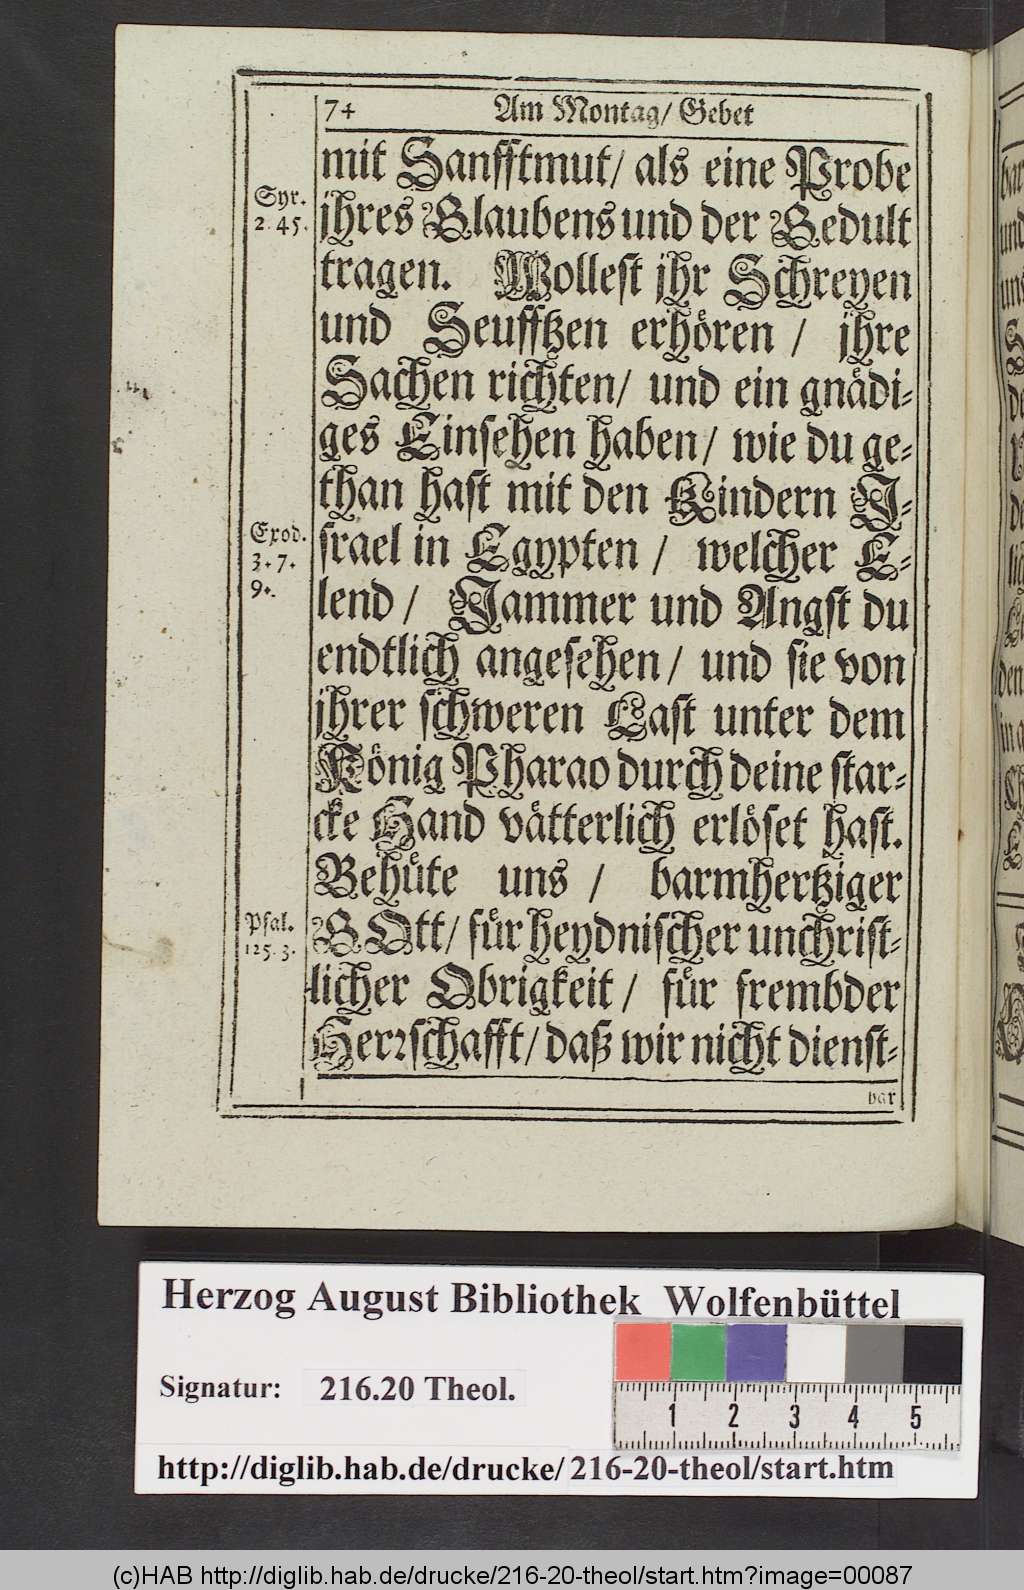 74 Am Montag/ Gebet
mit Sanfftmut/ als eine Probe
Syr.
2. 45.
jhres Glaubens und der Gedult
tragen. Wollest jhr Schreyen
und Seufftzen erhören / jhre
Sachen richten/ und ein gnädi-
ges Einsehen haben/ wie du ge-
than hast mit den Kindern J-
Exod.
3. 7.
9.
srael in Egypten / welcher E-
lend / Jammer und Angst du
endtlich angesehen/ und sie von
jhrer schweren Last unter dem
König Pharao durch deine star-
cke Hand vätterlich erlöset hast.
Behüte uns / barmhertziger
Psal.
125. 3.
GOtt/ für heydnischer unchrist-
licher Obrigkeit / für frembder
Herrschafft/ daß wir nicht dienst-
bar
Herzog August Bibliothek Wolfenbüttel
Signatur: 216.20 Theol.
1 2 3 4 5
http://diglib.hab.de/drucke/216-20-theol/start.htm
(c)HAB http://diglib.hab.de/drucke/216-20-theol/start.htm?image=00087